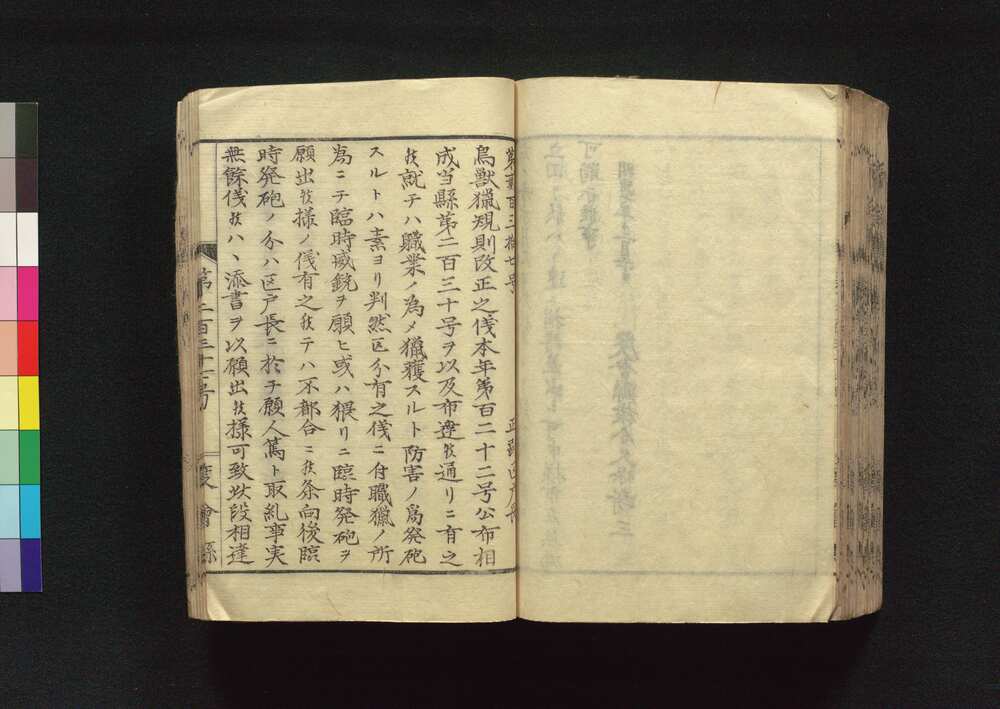 第二百三拾七号 正副区戸長
鳥獣猟規則改正之儀本年第百二十二号公布相
成当縣第二百三十号ヲ以及布達候通リニ有之
候就テハ職業ノ為メ猟獲スルト防害ノ為発砲
スルトハ素ヨリ判然区分有之儀ニ付職猟ノ所
為ニテ臨時威銃ヲ願ヒ或ハ猥リニ臨時発砲ヲ
願出候様ノ儀有之候テハ不都合ニ候条向後臨
時発砲ノ分ハ区戸長ニ於テ願人篤ト取糺事実
無餘儀候ハヽ添書ヲ以願出候様可致此段相達
第二百三十七号 度會縣